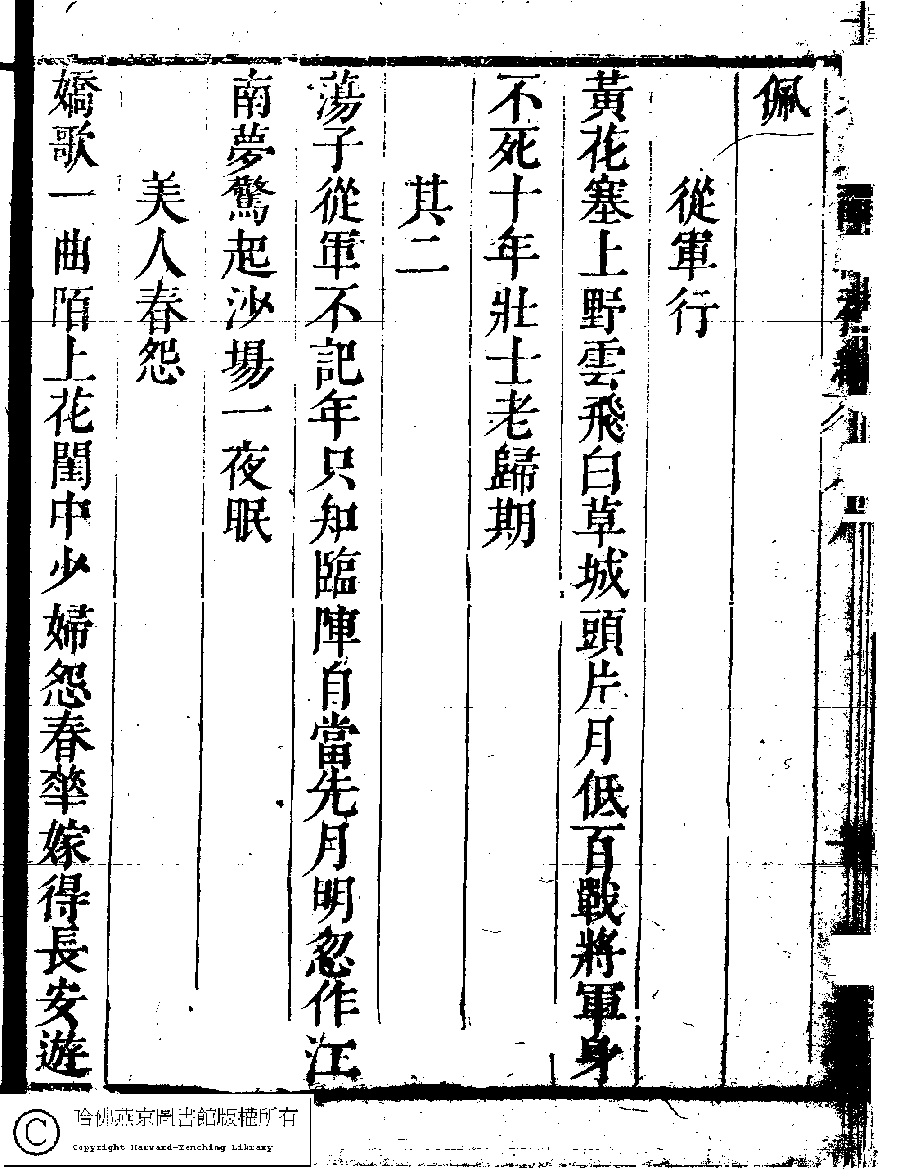 佩
從軍行
黃花塞上野雲飛白草城頭片月低百戰將軍身
不死十年壯士老歸期
其二
蕩子從軍不記年只知臨陣自當先月明忽作江
南夢驚起沙場一夜眠
美人春怨
嬌歌一曲陌上花閨中少婦怨春華嫁得長安遊
哈佛燕京圖書館版權所有
Copyright Harvard-Yenching Library